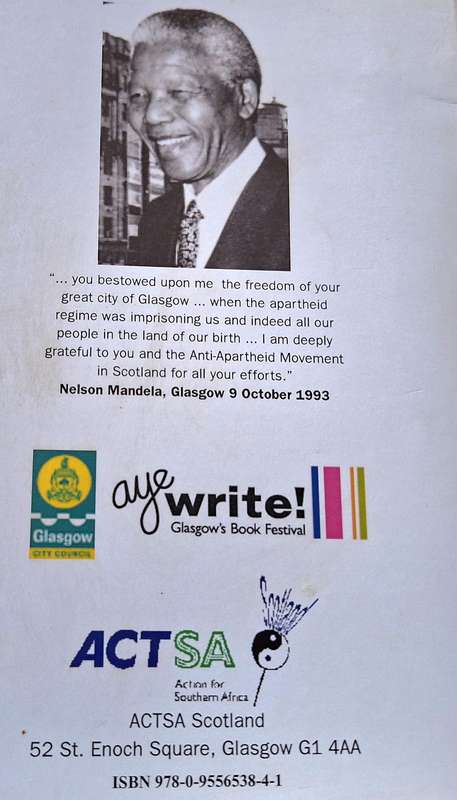 “... you bestowed upon me the freedom of your
great city of Glasgow ... when the apartheid
regime was imprisoning us and indeed all our
people in the land of our birth ... I am deeply
grateful to you and the Anti-Apartheid Movement
in Scotland for all your efforts.”
Nelson Mandela, Glasgow 9 October 1993
Glasgow
CITY COUNCIL
aye
write!
Glasgow's Book Festival
ACTSA
Action for
Southern Africa
ACTSA Scotland
52 St. Enoch Square, Glasgow G1 4AA
ISBN 978-0-9556538-4-1